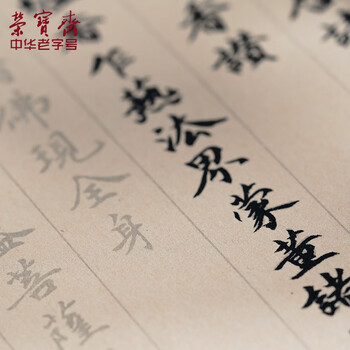 榮寶齋
中华老字号
香讚
乍爇法界蒙薰諸
佛現全身
菩薩